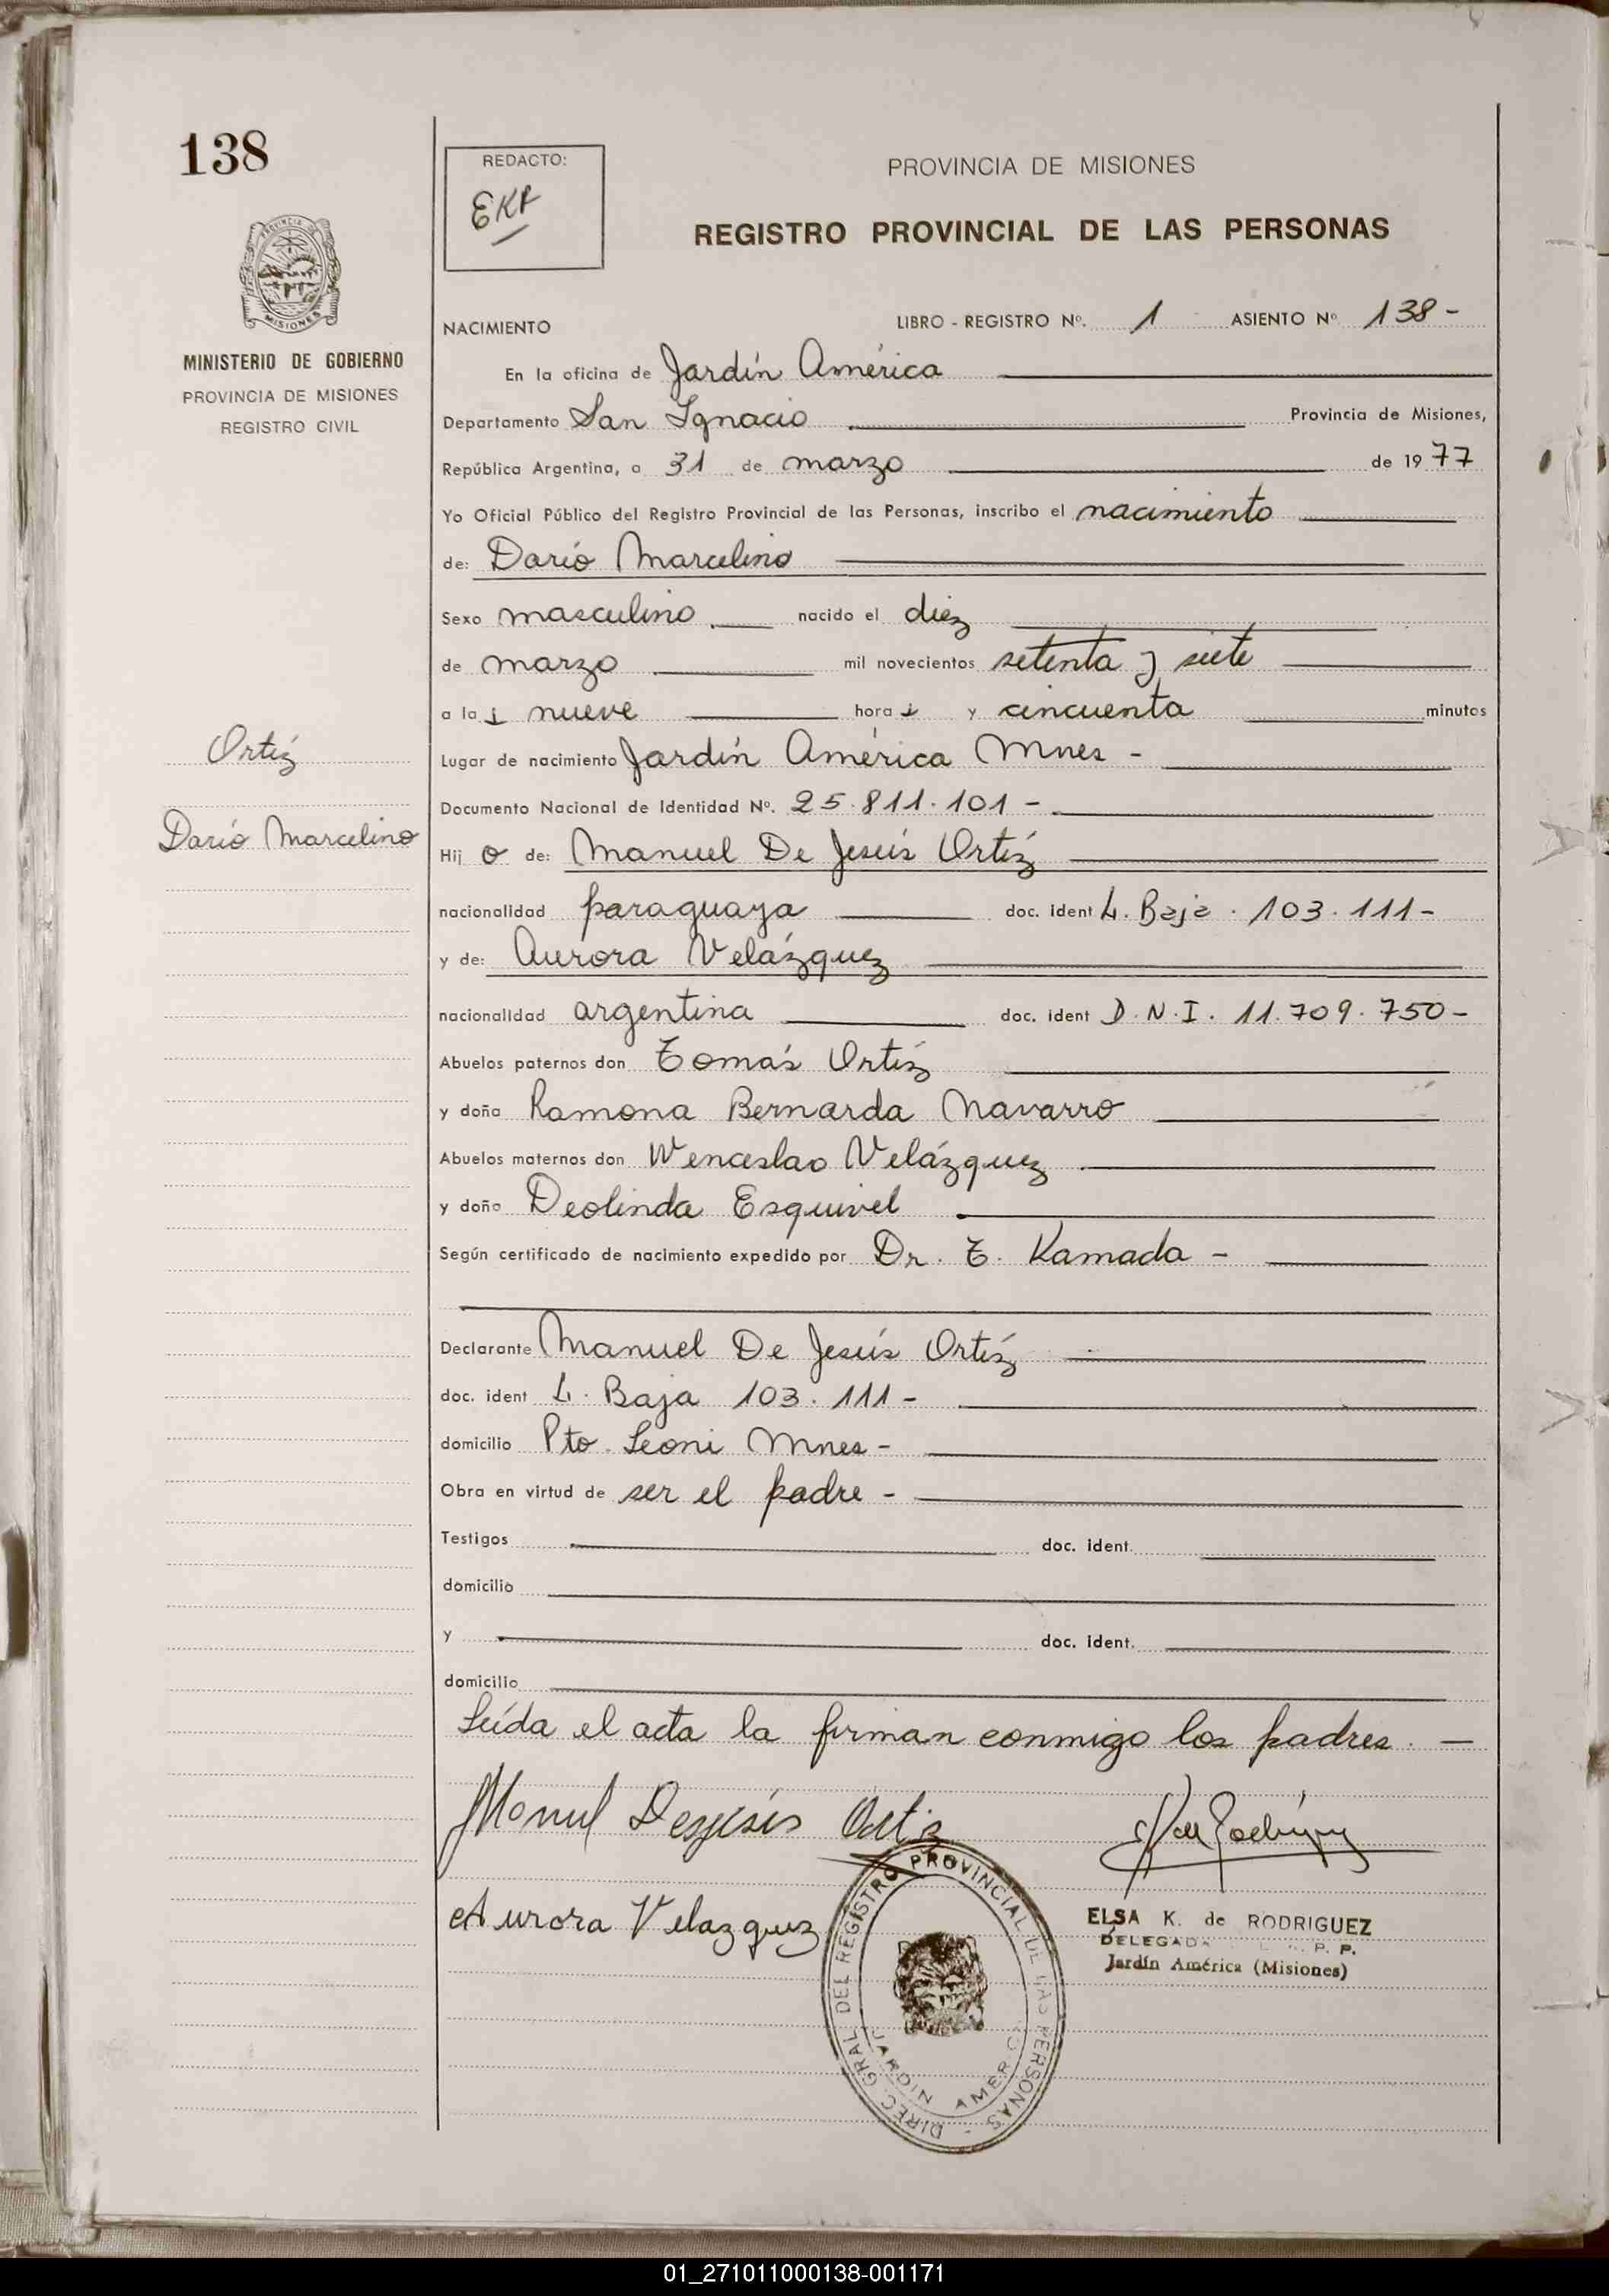 138
REDACTO:
EKR
PROVINCIA DE MISIONES
REGISTRO PROVINCIAL DE LAS PERSONAS
MISIONES
MINISTERIO DE GOBIERNO
PROVINCIA DE MISIONES
REGISTRO CIVIL
NACIMIENTO LIBRO - REGISTRO Nº. 1 ASIENTO Nº 138 -
En la oficina de Jardín América
Departamento San Ignacio Provincia de Misiones,
República Argentina, a 31 de marzo de 1977
Yo Oficial Público del Registro Provincial de las Personas, inscribo el nacimiento
de: Darío Marcelino
Sexo masculino nacido el diez
de marzo mil novecientos setenta y siete
a las nueve horas y cincuenta minutos
Ortíz
Lugar de nacimiento Jardín América Mnes -
Documento Nacional de Identidad Nº. 25.811.101 -
Darío Marcelino
Hijo de: Manuel De Jesús Ortíz
nacionalidad paraguaya doc. ident L. Baja. 103.111 -
y de: Aurora Velázquez
nacionalidad argentina doc. ident D.N.I. 11.709.750 -
Abuelos paternos don Tomás Ortíz
y doña Ramona Bernarda Navarro
Abuelos maternos don Wenceslao Velázquez
y doña Deolinda Esquivel
Según certificado de nacimiento expedido por Dr. T. Kamada -
Declarante Manuel De Jesús Ortíz
doc. ident L. Baja 103.111 -
domicilio Pto. Leoni Mnes -
Obra en virtud de ser el padre -
Testigos doc. ident.
domicilio
y doc. ident.
domicilio
Leída el acta la firman conmigo los padres. -
Manul Desjesús Ortiz
Aurora Velazquez
DIREC GRAL DEL REGISTRO PROVINCIAL DE LAS PERSONAS -
JARDIN AMERICA
ELSA K. de RODRIGUEZ
DELEGADA P. P.
Jardín América (Misiones)
01_271011000138-001171